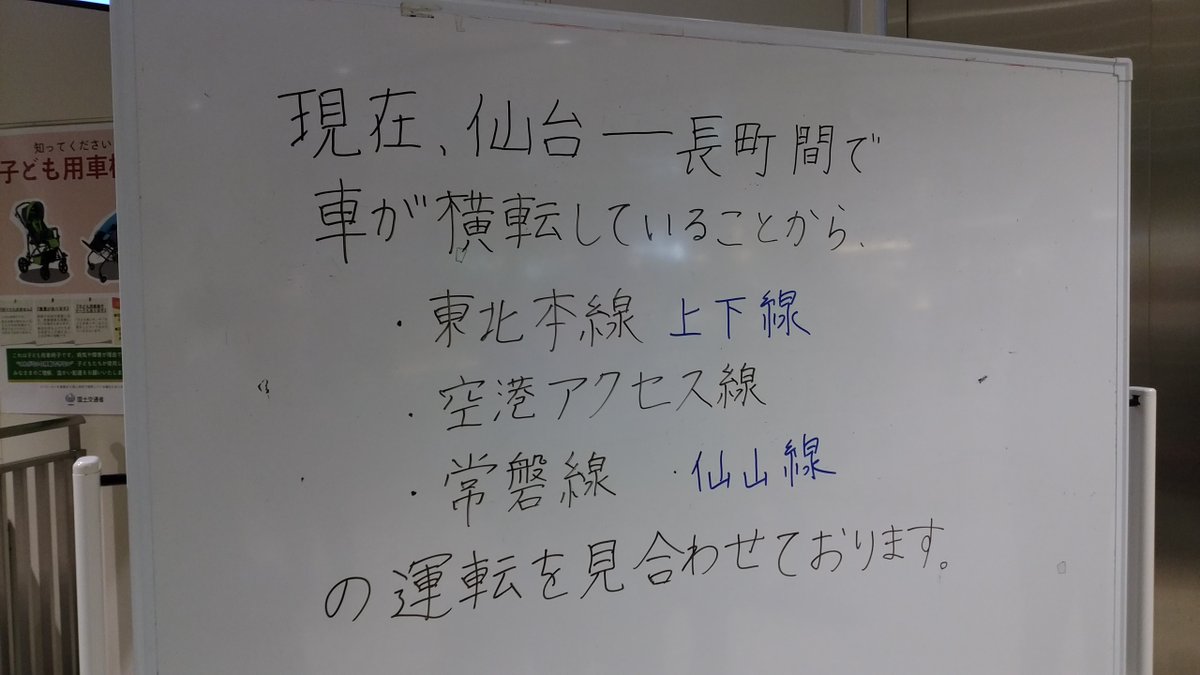 現在、仙台―長町間で
車が横転していることから、
・東北本線 上下線
・空港アクセス線
・常磐線 ・仙山線
の運転を見合わせております。
知ってください
子ども用車椅
国土交通省